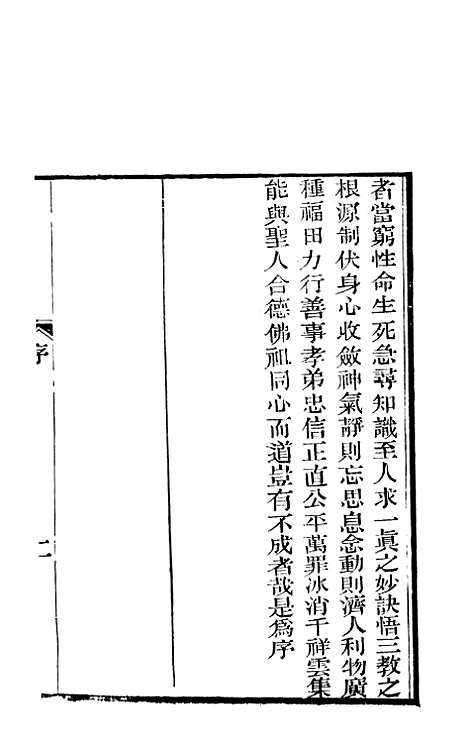 者當窮性命生死急尋知識至人求一眞之妙訣悟三敎之
根源制伏身心收斂神氣靜則忘思息念動則濟人利物廣
種福田力行善事孝弟忠信正直公平萬罪冰消千祥雲集
能與聖人合德佛祖同心而道豈有不成者哉是爲序
序
二